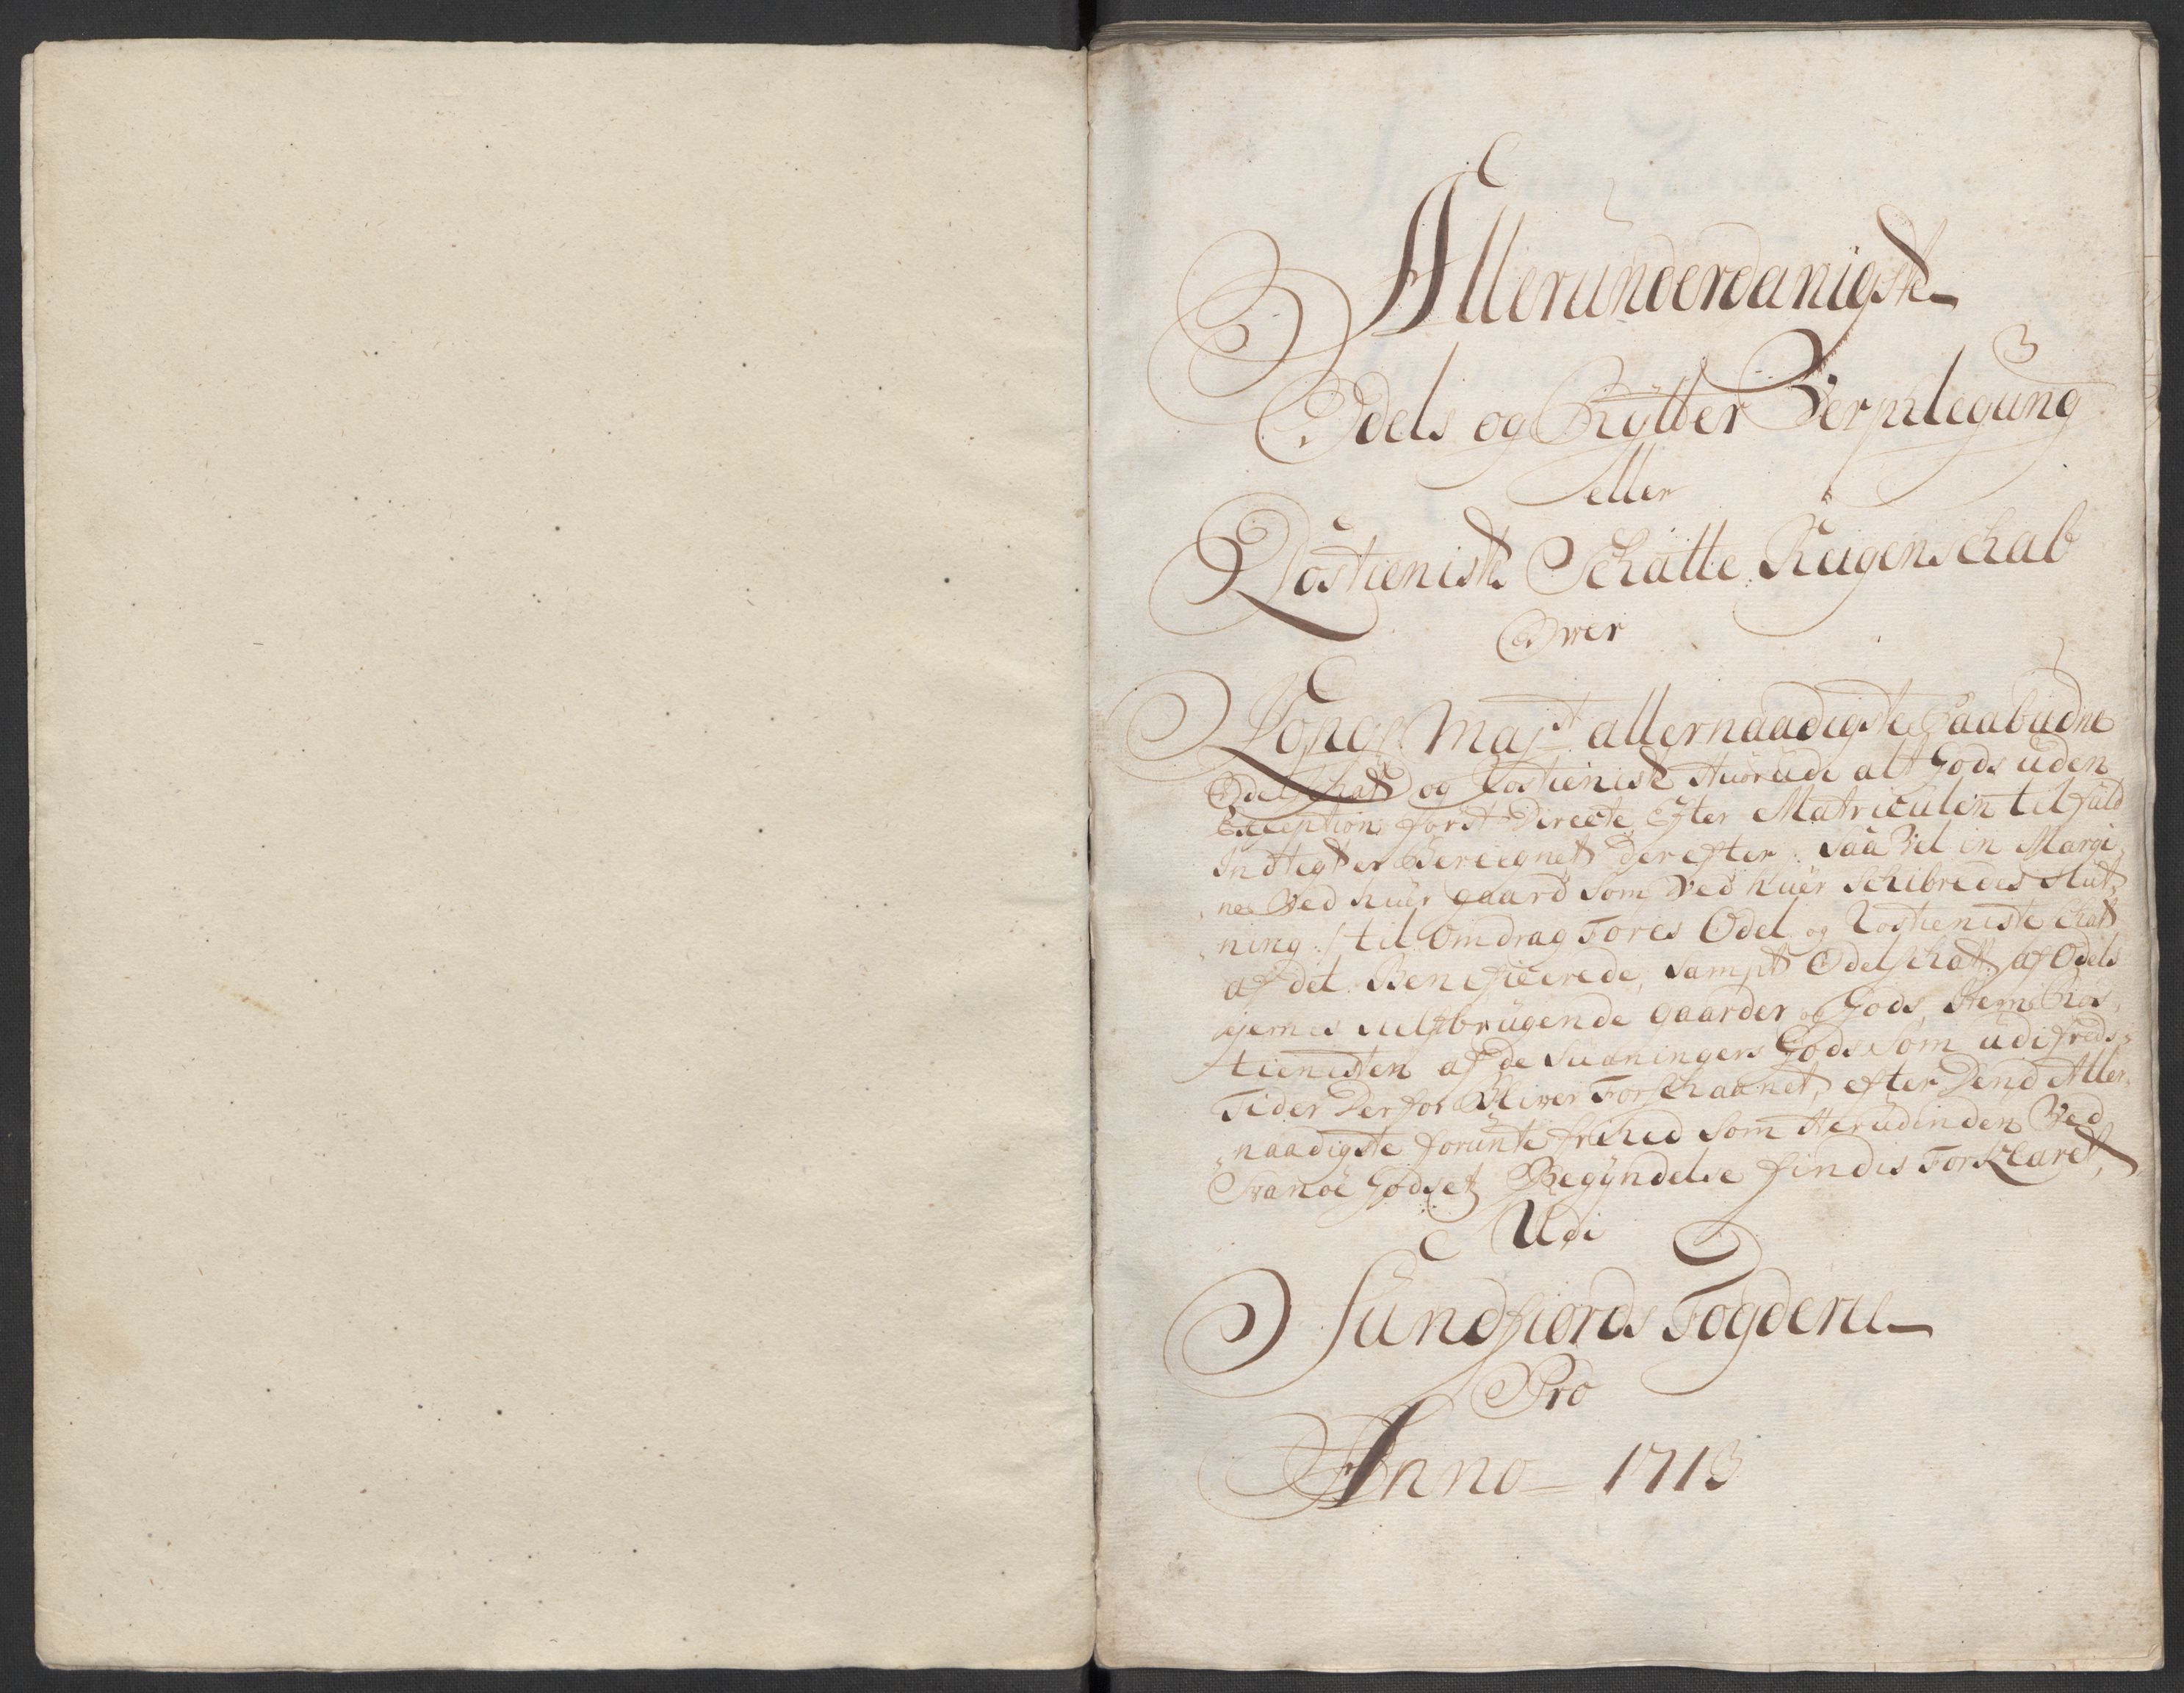 Allerunderdanigste
Odels og Rÿtter Verphlegung
eller
Rostienist Schatte Reigenschab
Over
Kongl. Maj.st allernaadigste Paabudne
Odelschatt og Rostienist Huorudi alt Gods uden
Exception først Directe Efter Matriculen til fuld
Indtegt er Beregnet Derefter saa Vel in Margi¸
ne Ved huer gaard Som Ved huer Schibredes Slut¸
ning /: til Omdrag Føres Odel og Rostieniste Schatt
af det Beneficerede, sampt Odelschatt af Odels
ejernis selfbrugende gaarder og Gods, Item Ros¸
tienisten af de Suaningers Gods som udi freds¸
Tider Derfor Bliver Forschaanet, efter Dend Aller¸
naadigste forunte frihed Som Herudinden Ved
Svanöe Godset Begÿndelse findis Forklaret,
Udi
Sundfiords Fogderie
Pro
Anno 1713